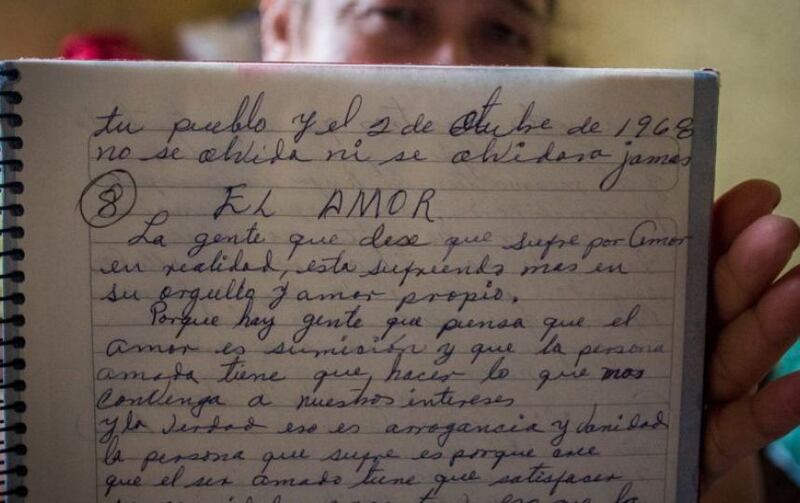 tu pueblo y el 2 de Octubre de 1968
no se olvida ni se olvidara jamas
8 EL AMOR
La gente que dese que sufre por Amor
en realidad, esta sufriendo mas en
su orgullo y amor propio.
Porque hay gente que piensa que el
amor es sumición y que la persona
amada tiene que hacer lo que mas
convenga a nuestros intereses
y la verdad eso es arrogancia y vanidad
la persona que sufre es porque cree
que el ser amado tiene que satisfacer